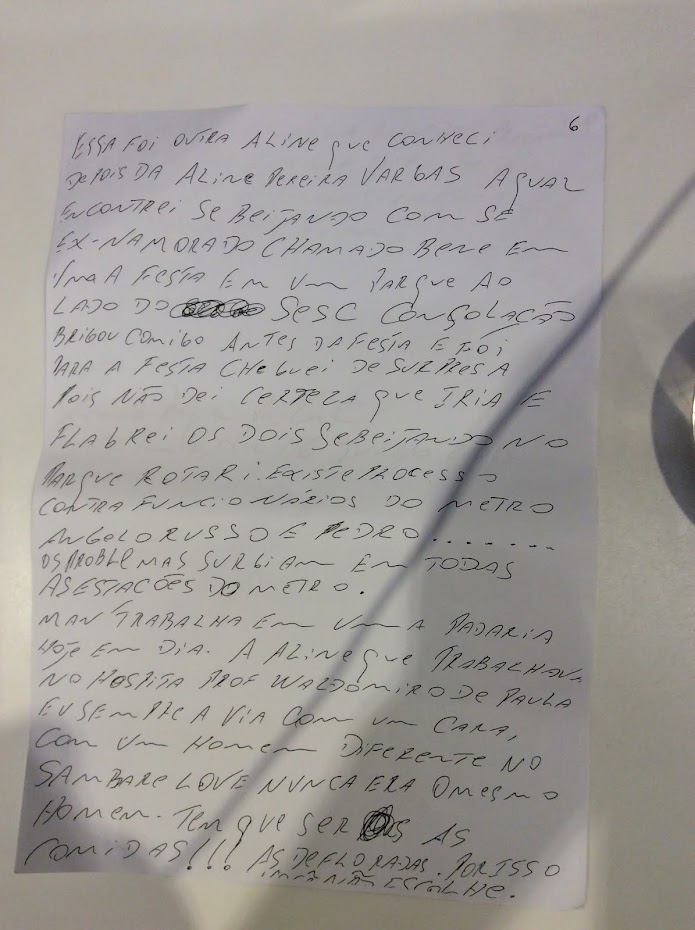 6
ESSA FOI OUTRA ALINE que CONHECI
DEPOIS DA ALINE PEREIRA VARGAS A QUAL
ENCONTREI SE BEIJANDO COM SE
EX-NAMORADO CHAMADO BENE EM
A FESTA EM UM PARQUE AO
LADO DO SESC CONSOLAÇÃO
BRIGOU COMIGO ANTES DA FESTA E FOI
PARA A FESTA CHEGUEI DE SURPRESA
POIS NÃO DEI CERTEZA que IRIA E
FLABREI OS DOIS SE BEIJANDO NO
PARQUE ROTARI. EXISTE PROCESSO
CONTRA FUNCIONÁRIOS DO METRO
ANGELO RUSSO E PEDRO........
OS PROBLEMAS SURGIAM EM TODAS
AS ESTAÇÕES DO METRO.
TRABALHA EM UMA PADARIA
HOJE EM DIA. A ALINE que TRABALHAVA
NO HOSPITA PROF WALDOMIRO DE PAULA
EU SEMPRE A VIA COM UM CARA,
COM UM HOMEM DIFERENTE NO
SAMBARE LOVE NUNCA ERA O MESMO
HOMEM. TEM QUE SER AS
COMIDAS!!! AS DEFLORADAS. POR ISSO
NÃO ESCOLHE.